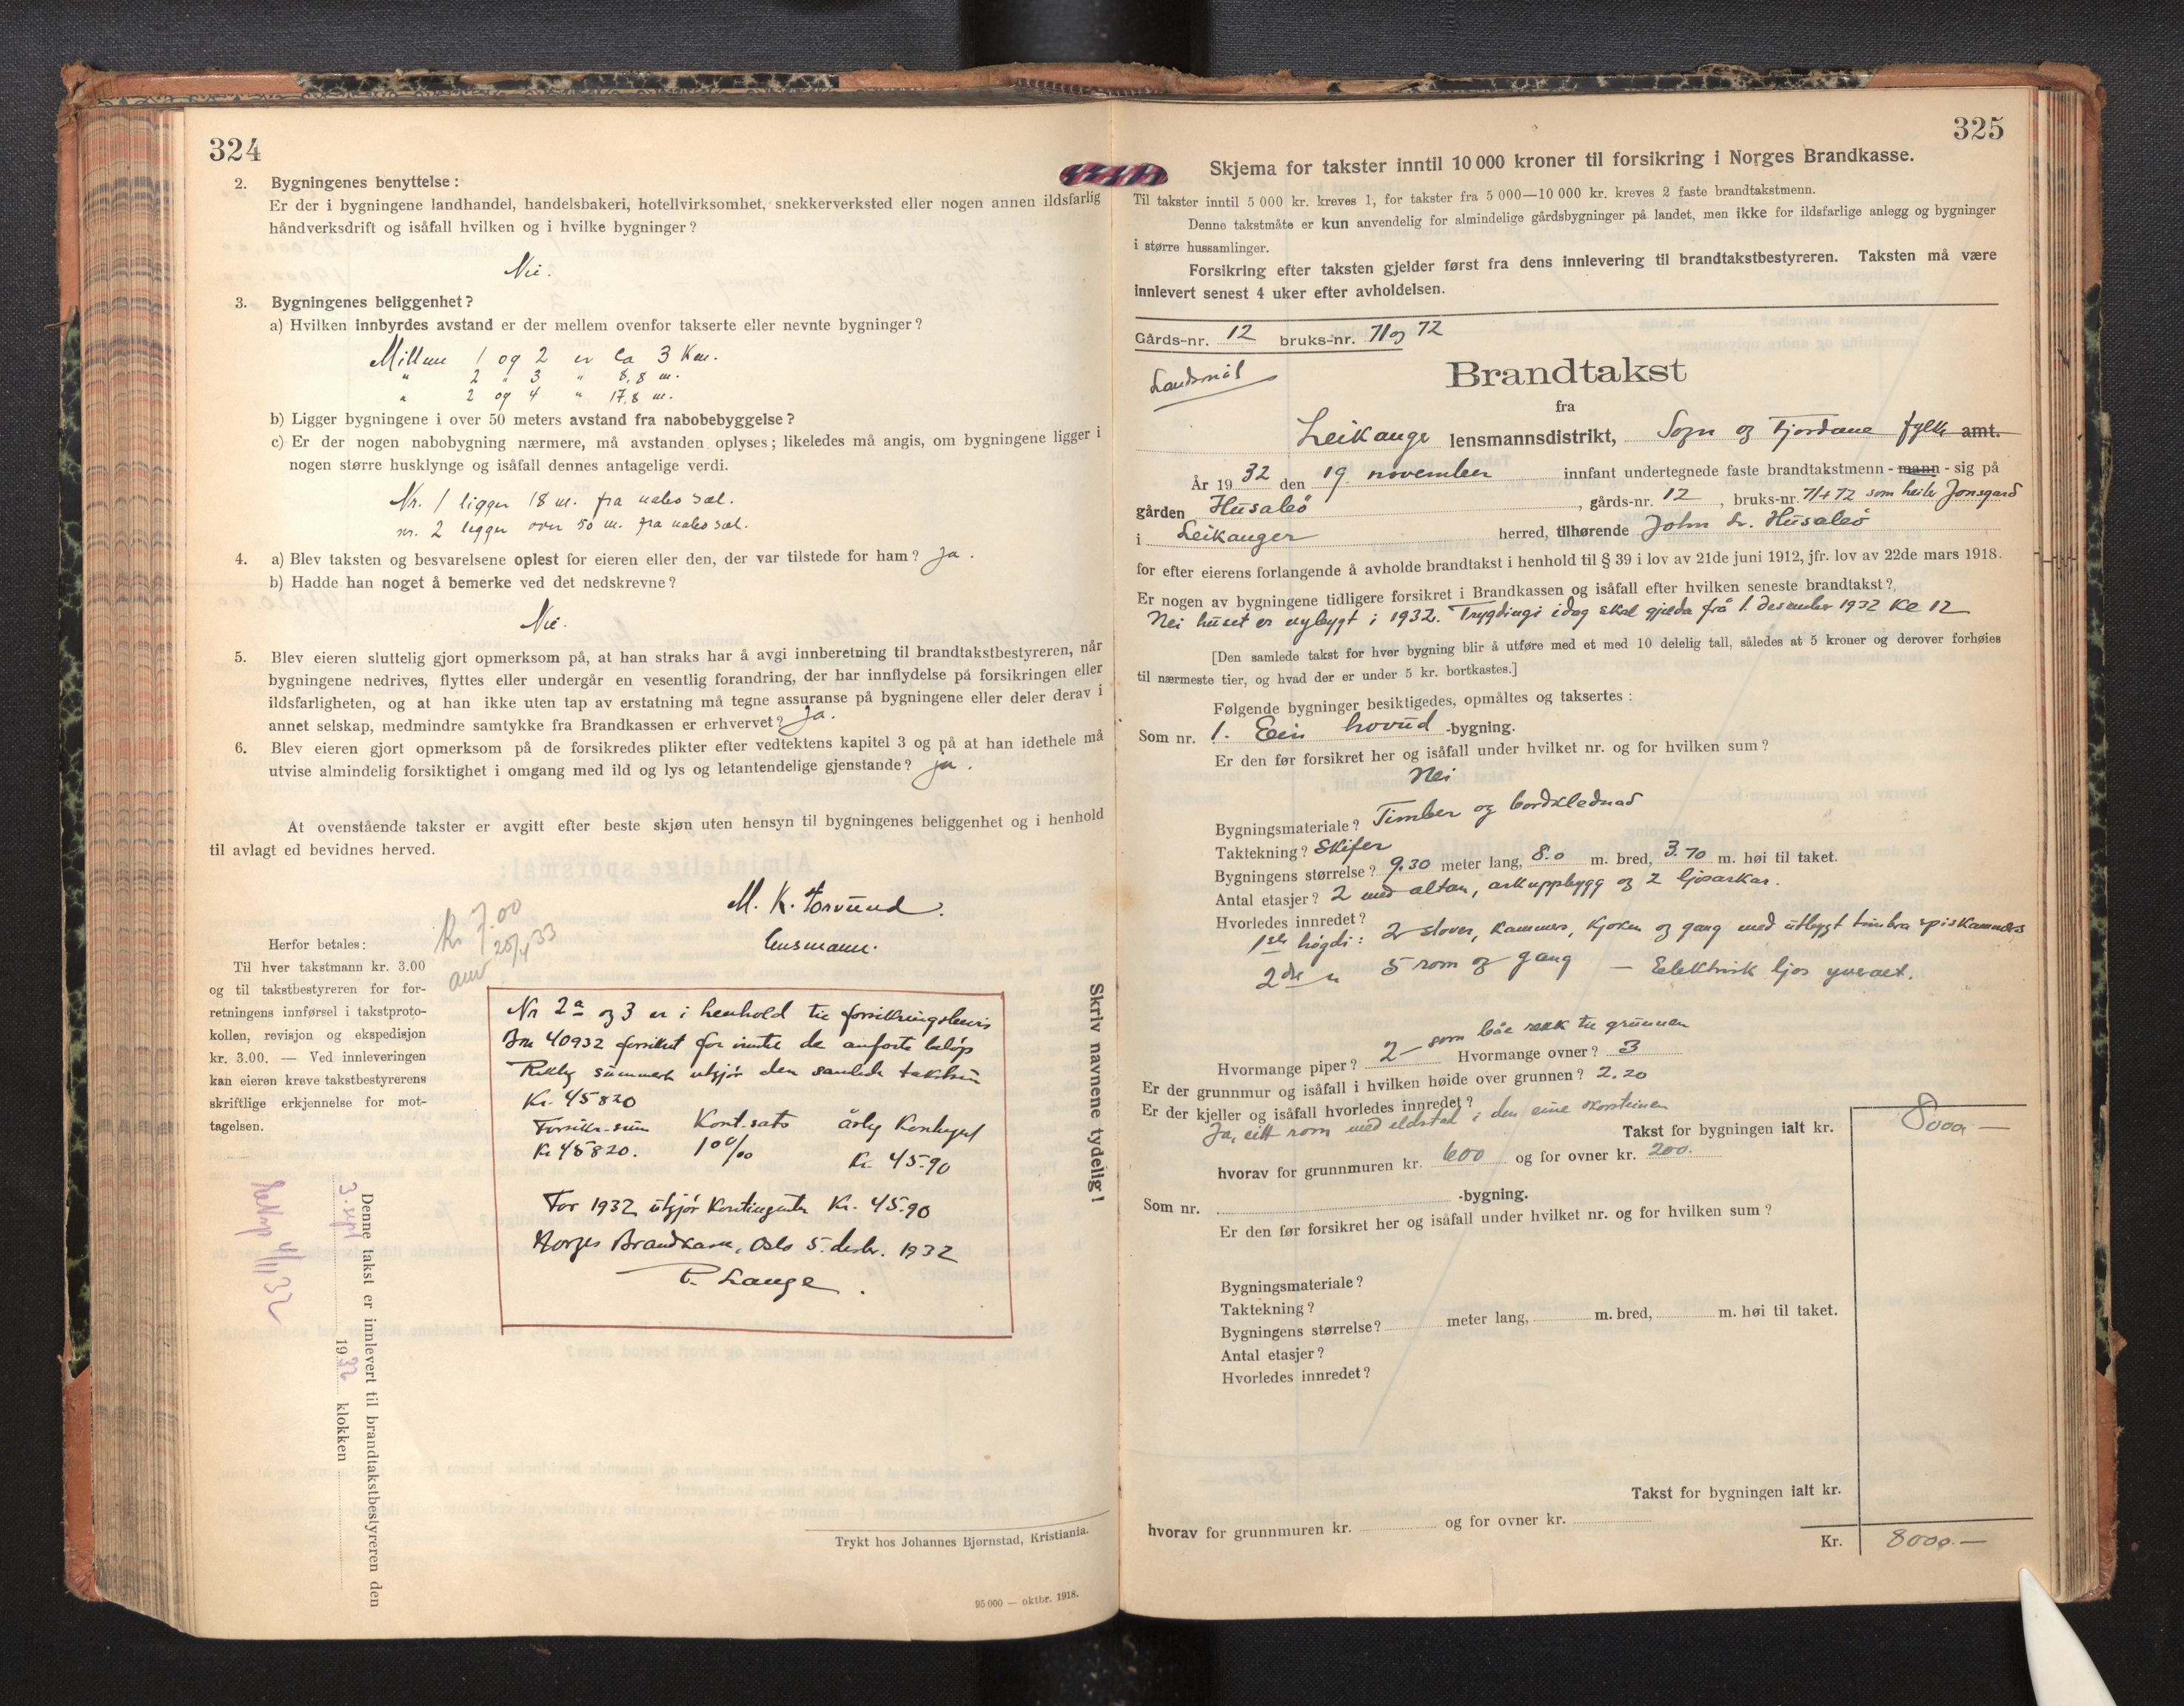 324
2. Bygningenes benyttelse:
Er der i bygningene landhandel, handelsbakeri, hotellvirksomhet, snekkerverksted eller nogen annen ildsfarlig
håndverksdrift og isåfall hvilken og i hvilke bygninger?
Nei.
3. Bygningenes beliggenhet?
a) Hvilken innbyrdes avstand er der mellem ovenfor takserte eller nevnte bygninger?
Millum 1 og 2 er ca 3 Km.
" 2 " 3 " 8,8 m.
" 2 og 4 " 17,8 m.
b) Ligger bygningene i over 50 meters avstand fra nabobebyggelse?
c) Er der nogen nabobygning nærmere, må avstanden oplyses; likeledes må angis, om bygningene ligger i
nogen større husklynge og isåfall dennes antagelige verdi.
Nr. 1 ligger 18 m. fra nabo sæl.
nr. 2 ligger over 50 m. fra nabo sæl.
4. a) Blev taksten og besvarelsene oplest for eieren eller den, der var tilstede for ham? Ja.
b) Hadde han noget å bemerke ved det nedskrevne?
Nei.
5. Blev eieren sluttelig gjort opmerksom på, at han straks har å avgi innberetning til brandtakstbestyreren, når
bygningene nedrives, flyttes eller undergår en vesentlig forandring, der har innflydelse på forsikringen eller
ildsfarligheten, og at han ikke uten tap av erstatning må tegne assuranse på bygningene eller deler derav i
annet selskap, medmindre samtykke fra Brandkassen er erhvervet? Ja.
6. Blev eieren gjort opmerksom på de forsikredes plikter efter vedtektens kapitel 3 og på at han idethele må
utvise almindelig forsiktighet i omgang med ild og lys og letantendelige gjenstande? Ja.
At ovenstående takster er avgitt efter beste skjøn uten hensyn til bygningenes beliggenhet og i henhold
til avlagt ed bevidnes herved.
M. K. Forsund.
lensmann.
Kr 7.00
25/4 33
Herfor betales:
Til hver takstmann kr. 3.00
og til takstbestyreren for for-
retningens innførsel i takstproto-
kollen, revisjon og ekspedisjon
kr. 3.00. — Ved innleveringen
kan eieren kreve takstbestyrerens
skriftlige erkjennelse for mot-
tagelsen.
Nr 2a og 3 er i henhold til forsikringsbevis
Bra 40932 forsikret for inntil de anførte beløp
summen utgjør den samlede takstsum
Kr. 45820
Forsikr.-sum Kont.sats årlig Kontingent
Kr 45820. 1 0/00 Kr. 45.90
For 1932 utgjør Kontingenten Kr. 45.90
Norges Brandkasse, Oslo 5. desbr. 1932
P. Lange.
Skriv navnene tydelig!
Denne takst er innlevert til brandtakstbestyreren den
3. sept 1932 klokken
4/11 32
Trykt hos Johannes Bjørnstad, Kristiania.
95 000 — oktbr. 1918.
325
Skjema for takster inntil 10 000 kroner til forsikring i Norges Brandkasse.
Til takster inntil 5 000 kr. kreves 1, for takster fra 5 000—10 000 kr. kreves 2 faste brandtakstmenn.
Denne takstmåte er kun anvendelig for almindelige gårdsbygninger på landet, men ikke for ildsfarlige anlegg og bygninger
i større hussamlinger.
Forsikring efter taksten gjelder først fra dens innlevering til brandtakstbestyreren. Taksten må være
innlevert senest 4 uker efter avholdelsen.
Gårds-nr. 12 bruks-nr. 71 og 72
Landsmål
Brandtakst
fra
Leikanger lensmannsdistrikt, Sogn og Fjordane fylke amt.
År 1932 den 19. november innfant undertegnede faste brandtakstmenn - mann - sig på
gården Husabø, gårds-nr. 12, bruks-nr. 71+72 som heiter Jonsgard
i Leikanger herred, tilhørende John Hr. Husabø
for efter eierens forlangende å avholde brandtakst i henhold til § 39 i lov av 21de juni 1912, jfr. lov av 22de mars 1918.
Er nogen av bygningene tidligere forsikret i Brandkassen og isåfall efter hvilken seneste brandtakst?
Nei huset er nybygt i 1932. Trygdingi idag skal gjelda frå 1. desember 1932 Kl 12
[Den samlede takst for hver bygning blir å utføre med et med 10 delelig tall, således at 5 kroner og derover forhøies
til nærmeste tier, og hvad der er under 5 kr. bortkastes.]
Følgende bygninger besiktigedes, opmåltes og taksertes:
Som nr. 1. Ein hovud -bygning.
Er den før forsikret her og isåfall under hvilket nr. og for hvilken sum?
Nei
Bygningsmateriale? Timber og bordklednad
Taktekning? Skifer
Bygningens størrelse? 9.30 meter lang, 8.0 m. bred, 3.70 m. høi til taket.
Antal etasjer? 2 med altan, arkuppbygg og 2 ljosarkar.
Hvorledes innredet?
1ste høgdi: 2 stover, kammers, kjøken og gang med utbygt timbra spiskammers
2dre " 5 rom og gang — Elektrisk ljos yveralt.
Hvormange piper? 2 – som båe rekk til grunnen Hvormange ovner? 3
Er der grunnmur og isåfall i hvilken høide over grunnen? 2.20
Er der kjeller og isåfall hvorledes innredet?
Ja, eitt rom med eldstad i den eine skorsteinen
Takst for bygningen ialt kr. 8000 —
hvorav for grunnmuren kr. 600 og for ovner kr. 200.
Som nr. -bygning.
Er den før forsikret her og isåfall under hvilket nr. og for hvilken sum?
Bygningsmateriale?
Taktekning?
Bygningens størrelse? meter lang, m. bred, m. høi til taket.
Antal etasjer?
Hvorledes innredet?
Takst for bygningen ialt kr.
hvorav for grunnmuren kr. og for ovner kr.
Kr. 8000.—